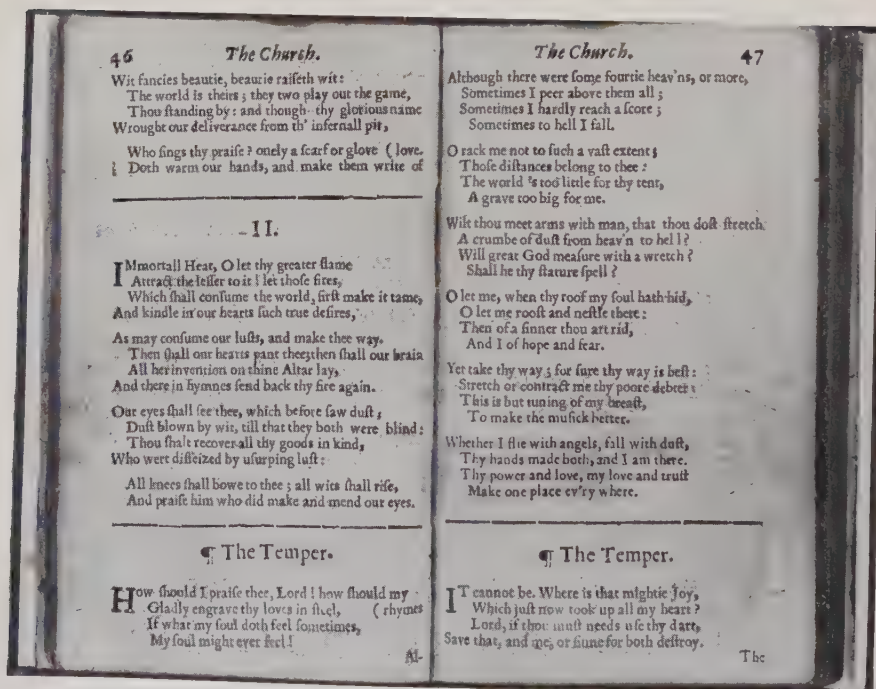 46 The Church.
Wit fancies beautie, beautie raiſeth wit:
The world is theirs; they two play out the game,
Thou ſtanding by: and though thy glorious name
Wrought our deliverance from th' infernall pit,
Who ſings thy praiſe? onely a ſcarf or glove ( love.
Doth warm our hands, and make them write of
II.
IMmortall Heat, O let thy greater flame
Attract the leſſer to it! let thoſe fires,
Which ſhall conſume the world, firſt make it tame,
And kindle in our hearts ſuch true deſires,
As may conſume our luſts, and make thee way.
Then ſhall our hearts pant thee; then ſhall our brain
All her invention on thine Altar lay,
And there in hymnes ſend back thy fire again.
Our eyes ſhall ſee thee, which before ſaw duſt;
Duſt blown by wit, till that they both were blind:
Thou ſhalt recover all thy goods in kind,
Who were diſſeized by uſurping luſt:
All knees ſhall bowe to thee; all wits ſhall riſe,
And praiſe him who did make and mend our eyes.
¶ The Temper.
HOw ſhould I praiſe thee, Lord! how ſhould my
Gladly engrave thy love in ſteel, ( rhymes
If what my ſoul doth feel ſometimes,
My ſoul might ever feel!
Al-
The Church. 47
Although there were ſome fourtie heav'ns, or more,
Sometimes I peer above them all;
Sometimes I hardly reach a ſcore;
Sometimes to hell I fall.
O rack me not to ſuch a vaſt extent;
Thoſe diſtances belong to thee:
The world 's too little for thy tent,
A grave too big for me.
Wilt thou meet arms with man, that thou doſt ſtretch
A crumbe of duſt from heav'n to hell?
Will great God meaſure with a wretch?
Shall he thy ſtature ſpell?
O let me, when thy roof my ſoul hath hid,
O let me rooſt and neſtle there:
Then of a ſinner thou art rid,
And I of hope and fear.
Yet take thy way; for ſure thy way is beſt:
Stretch or contract me thy poore debter:
This is but tuning of my breaſt,
To make the muſick better.
Whether I flie with angels, fall with duſt,
Thy hands made both, and I am there.
Thy power and love, my love and truſt
Make one place ev'ry where.
¶ The Temper.
IT cannot be. Where is that mightie Joy,
Which juſt now took up all my heart?
Lord, if thou muſt needs uſe thy dart,
Save that, and me, or ſinne for both deſtroy.
The